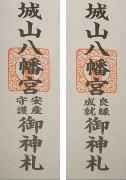 城山八幡宮
安産
守護
御神札
城山八幡宮
良縁
成就
御神札